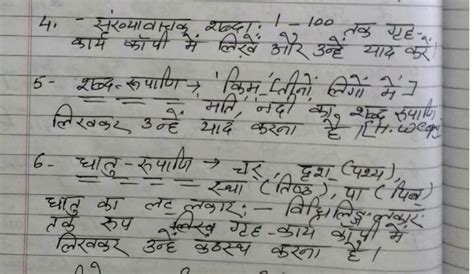 4. - संख्यावाचक शब्दा: 1 - 100 तक गृह-
कार्य कॉपी में लिखें और उन्हे याद करें।
5- शब्द-रूपाणि → किम् [तीनों लिंगों में]
मति, नदी का शब्द रूपाणि
लिखकर उन्हें याद करना है [H.W copy
6- धातु-रूपाणि → दृश् (पश्य),
स्था (तिष्ठ), पा (पिब)
धातु का लट् लकार: - विधिलिङ्ग लकार:
तक रूप लिख गृह-कार्य कॉपी में
लिखकर उन्हे कंठस्थ करना है।